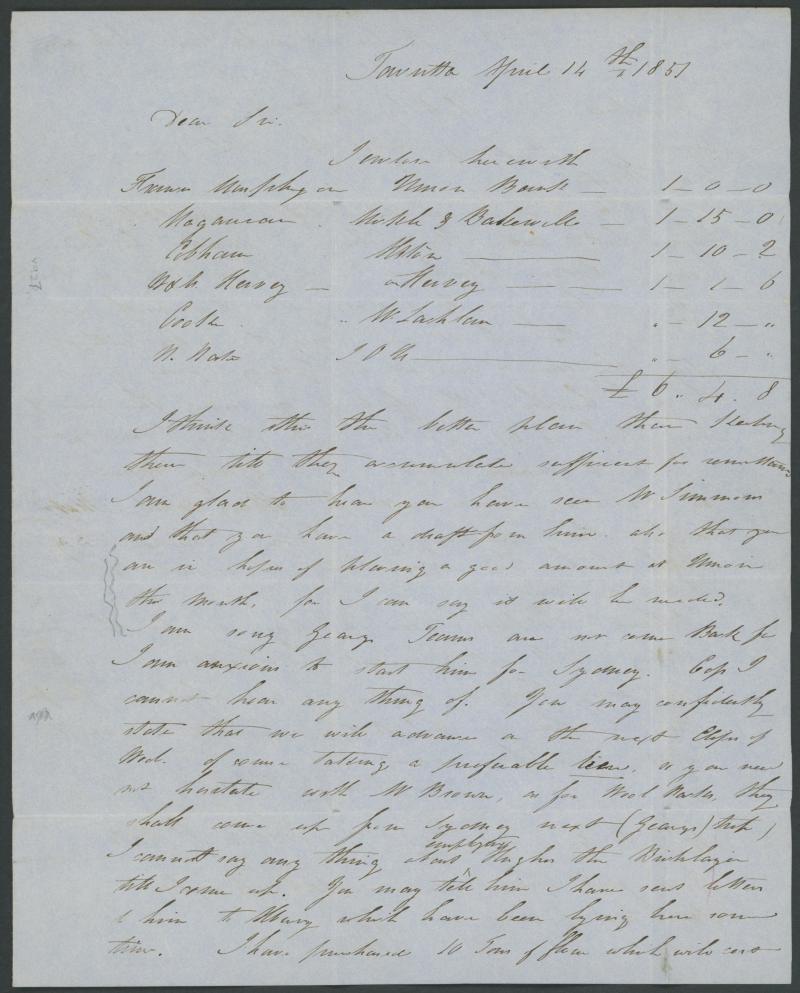 Tarutta April 14th 1851
Dear Sir.
I enclose herewith
Francis Murphy on Union Bank — 1 – 0 – 0
& Bakewell — 1 – 15 – 0
Cobham — 1 – 10 – 2
Hervey — " Hervey — 1 – 1 – 6
Cooke " McLachlan — " – 12 – "
I O U — " – 6 – "
£ 6 . 4 . 8
I think this the better plan than keeping
them till they accumulate sufficient for remittance
I am glad to hear you have seen Mr Simmons
and that you have a draft from him. also that you
are in hopes of placing a good amount at Union
this month, for I can say it will be needed.
I am sorry Georges Teams are not come Back for
I am anxious to start him for Sydney. I
cannot hear any thing of. You may confidently
state that we will advance on the next Clips of
Wool. of course taking a preferable lien, so you need
not hesitate with Mr Brown, as for Wool Packs, they
shall come up from Sydney next (Georges) trip)
I cannot say any thing about employing Hughes the Bricklayer
till I come up. You may tell him I have sent letters
to him to Albury which have been lying here some
time. I have purchased 10 Tons of flour which will cost